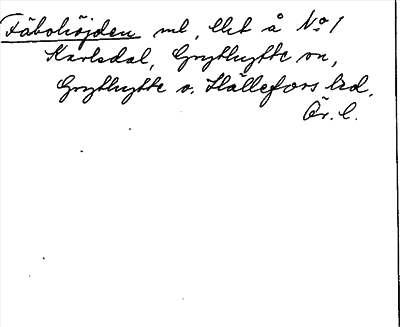 Fäbohöjden ml, lht å No 1
Karlsdal, Grythytte sn,
Grythytte o. Hällefors bsd.
Ör. l.